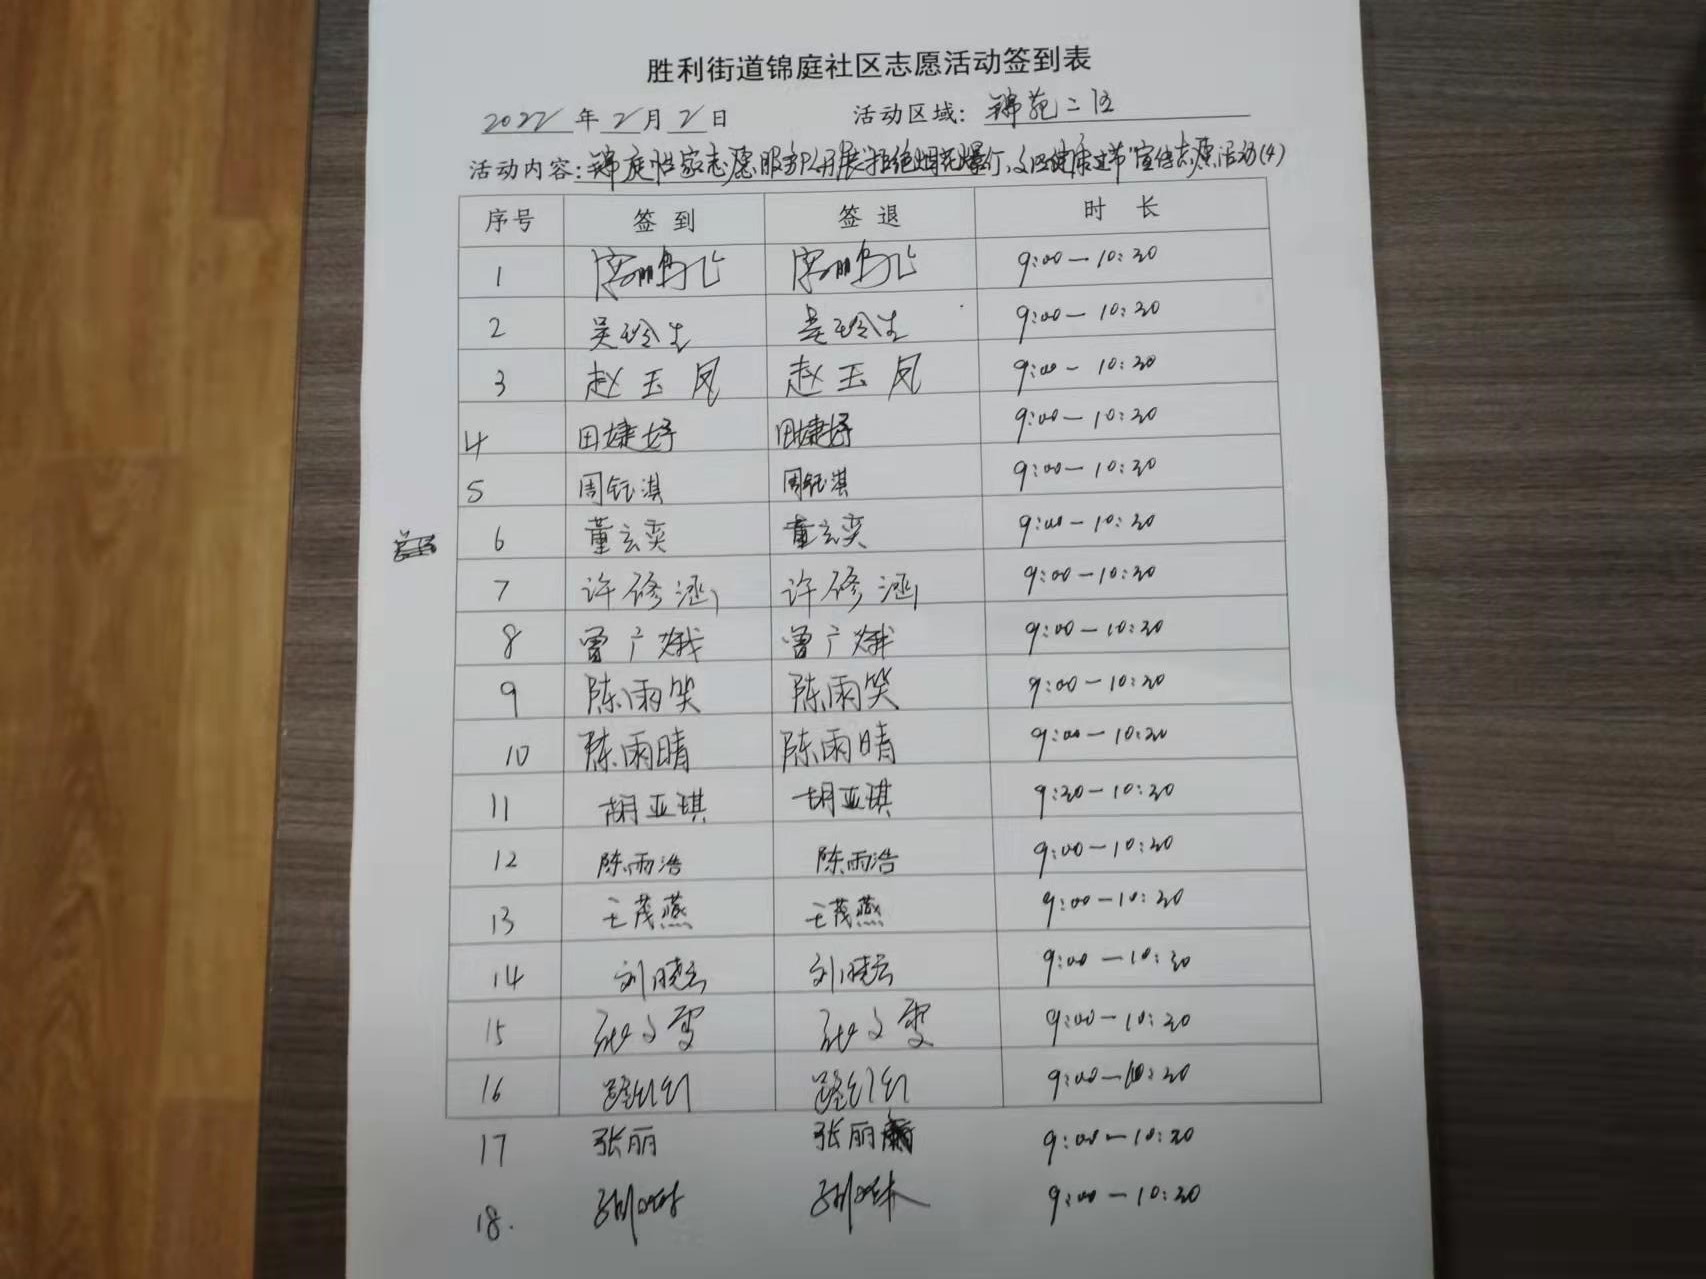 胜利街道锦庭社区志愿活动签到表
2022年2月2日 活动区域：锦苑二区
活动内容：锦庭恒家志愿服务队开展"拒绝烟花爆竹，文明健康过节"宣传志愿活动(4)
序号 签到 签退 时长
1 9:00—10:30
2 吴玲生 吴玲生 9:00—10:30
3 赵玉凤 赵玉凤 9:00—10:30
4 田婕妤 田婕妤 9:00—10:30
5 周钰淇 周钰淇 9:00—10:30
6 董玄奕 董玄奕 9:00—10:30
7 许修涵 许修涵 9:00—10:30
8 曾广娥 曾广娥 9:00—10:30
9 陈雨笑 陈雨笑 9:00—10:30
10 陈雨晴 陈雨晴 9:00—10:30
11 胡亚琪 胡亚琪 9:30—10:30
12 陈雨浩 陈雨浩 9:00—10:30
13 王茂燕 王茂燕 9:00—10:30
14 刘晓云 刘晓云 9:00—10:30
15 9:00—10:30
16 路红红 路红红 9:00—10:30
17 张丽 张丽 9:00—10:30
18. 9:00—10:30